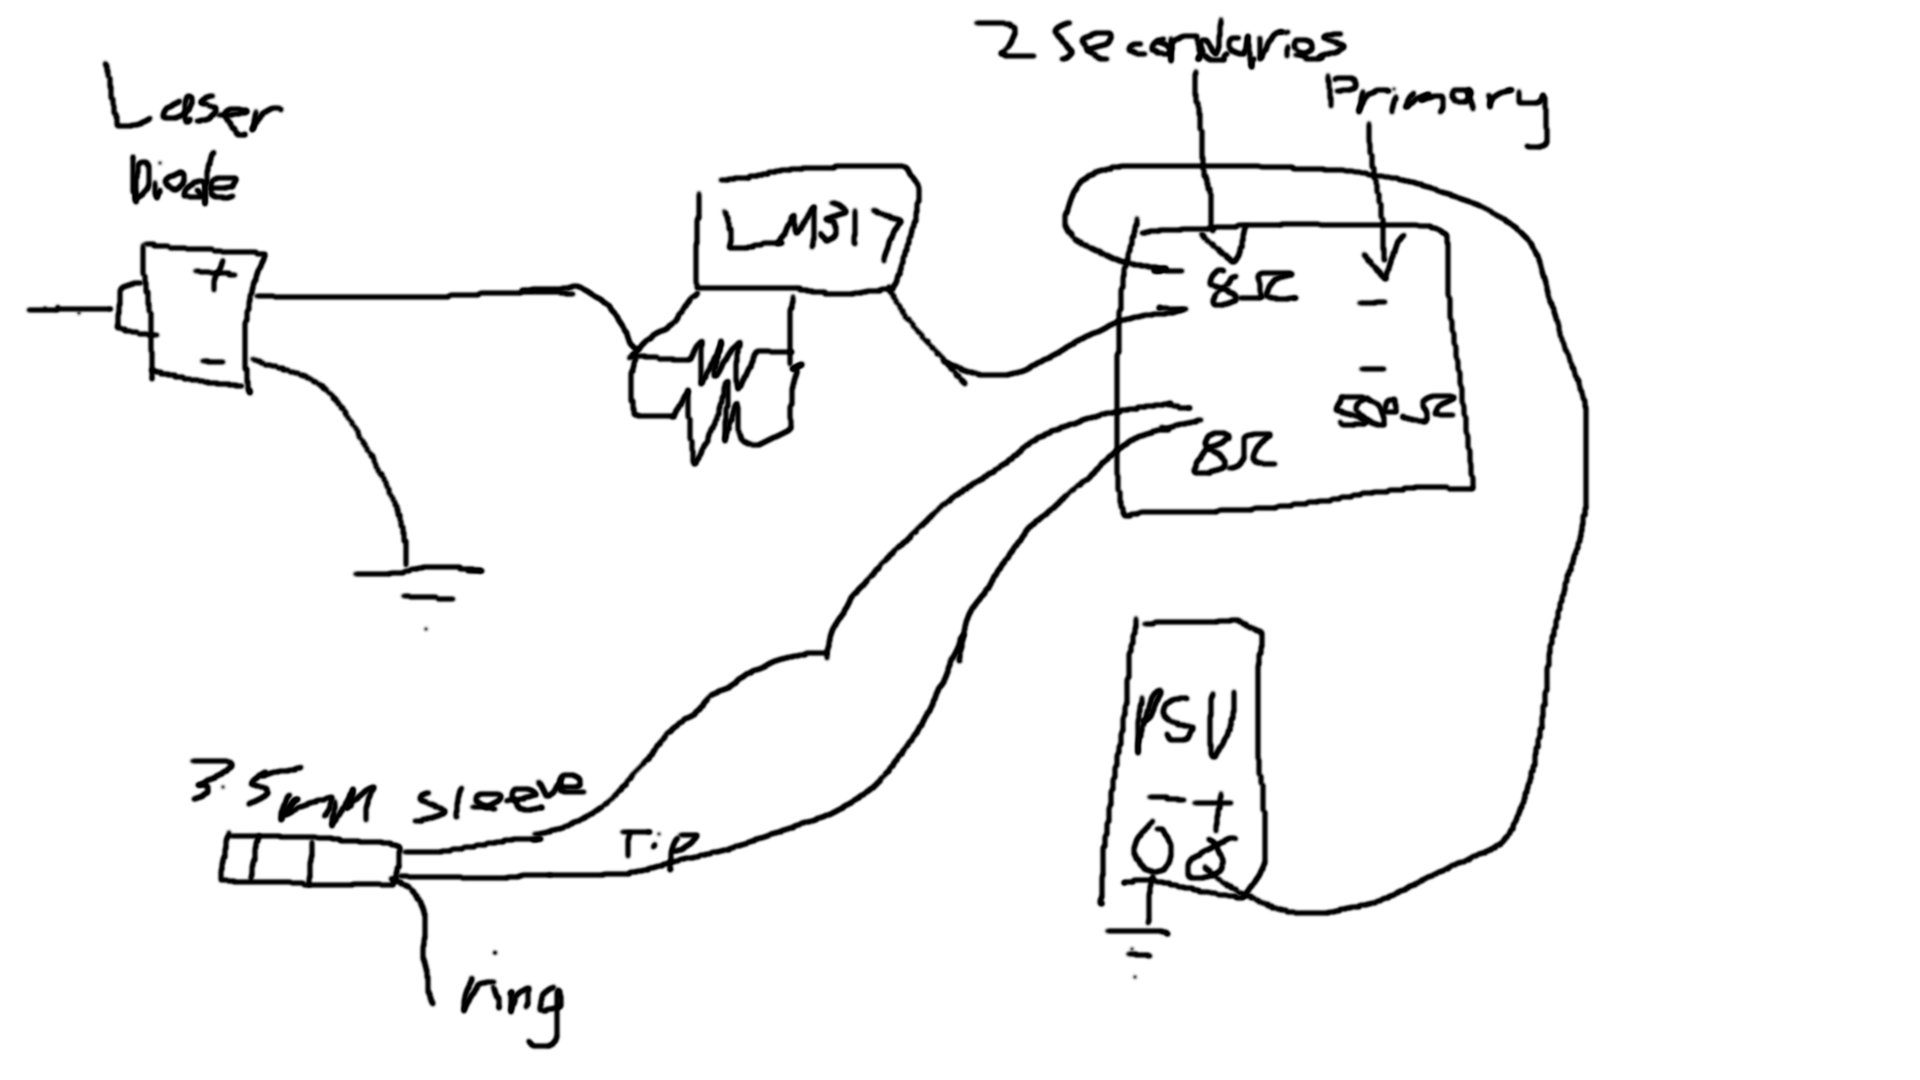 2 Secondaries
Primary
Laser
Diode
+
-
LM317
8Ω
-
-
500Ω
8Ω
PSU
- +
3.5mm sleeve
Tip
ring